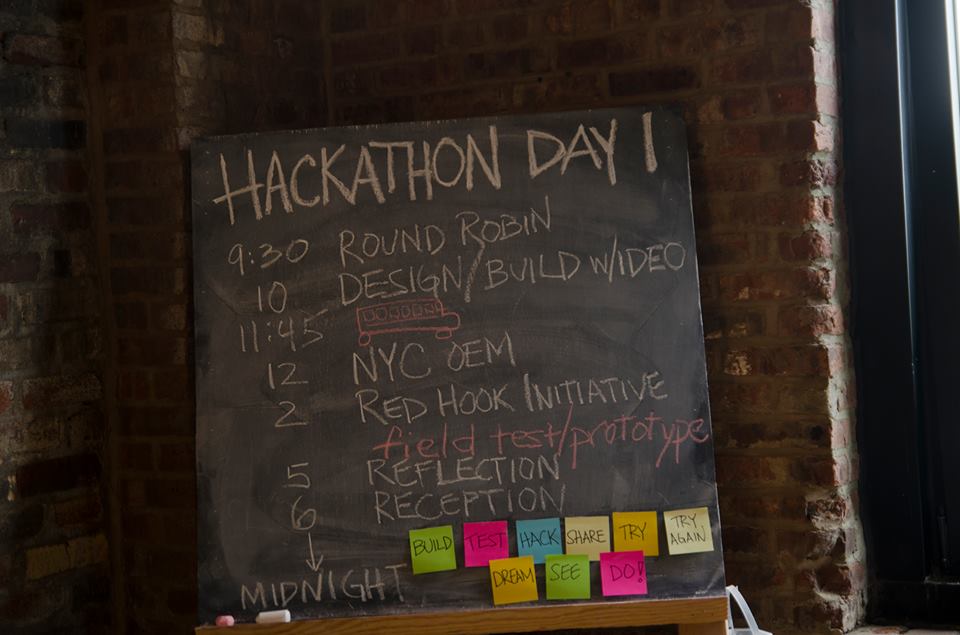 HACKATHON DAY 1
9:30 ROUND ROBIN
10 DESIGN/BUILD W/IDEO
11:45
12 NYC OEM
2 RED HOOK INITIATIVE
field test/prototype
5 REFLECTION
6 RECEPTION
↓
MIDNIGHT
BUILD TEST HACK SHARE TRY TRY AGAIN
DREAM SEE DO!